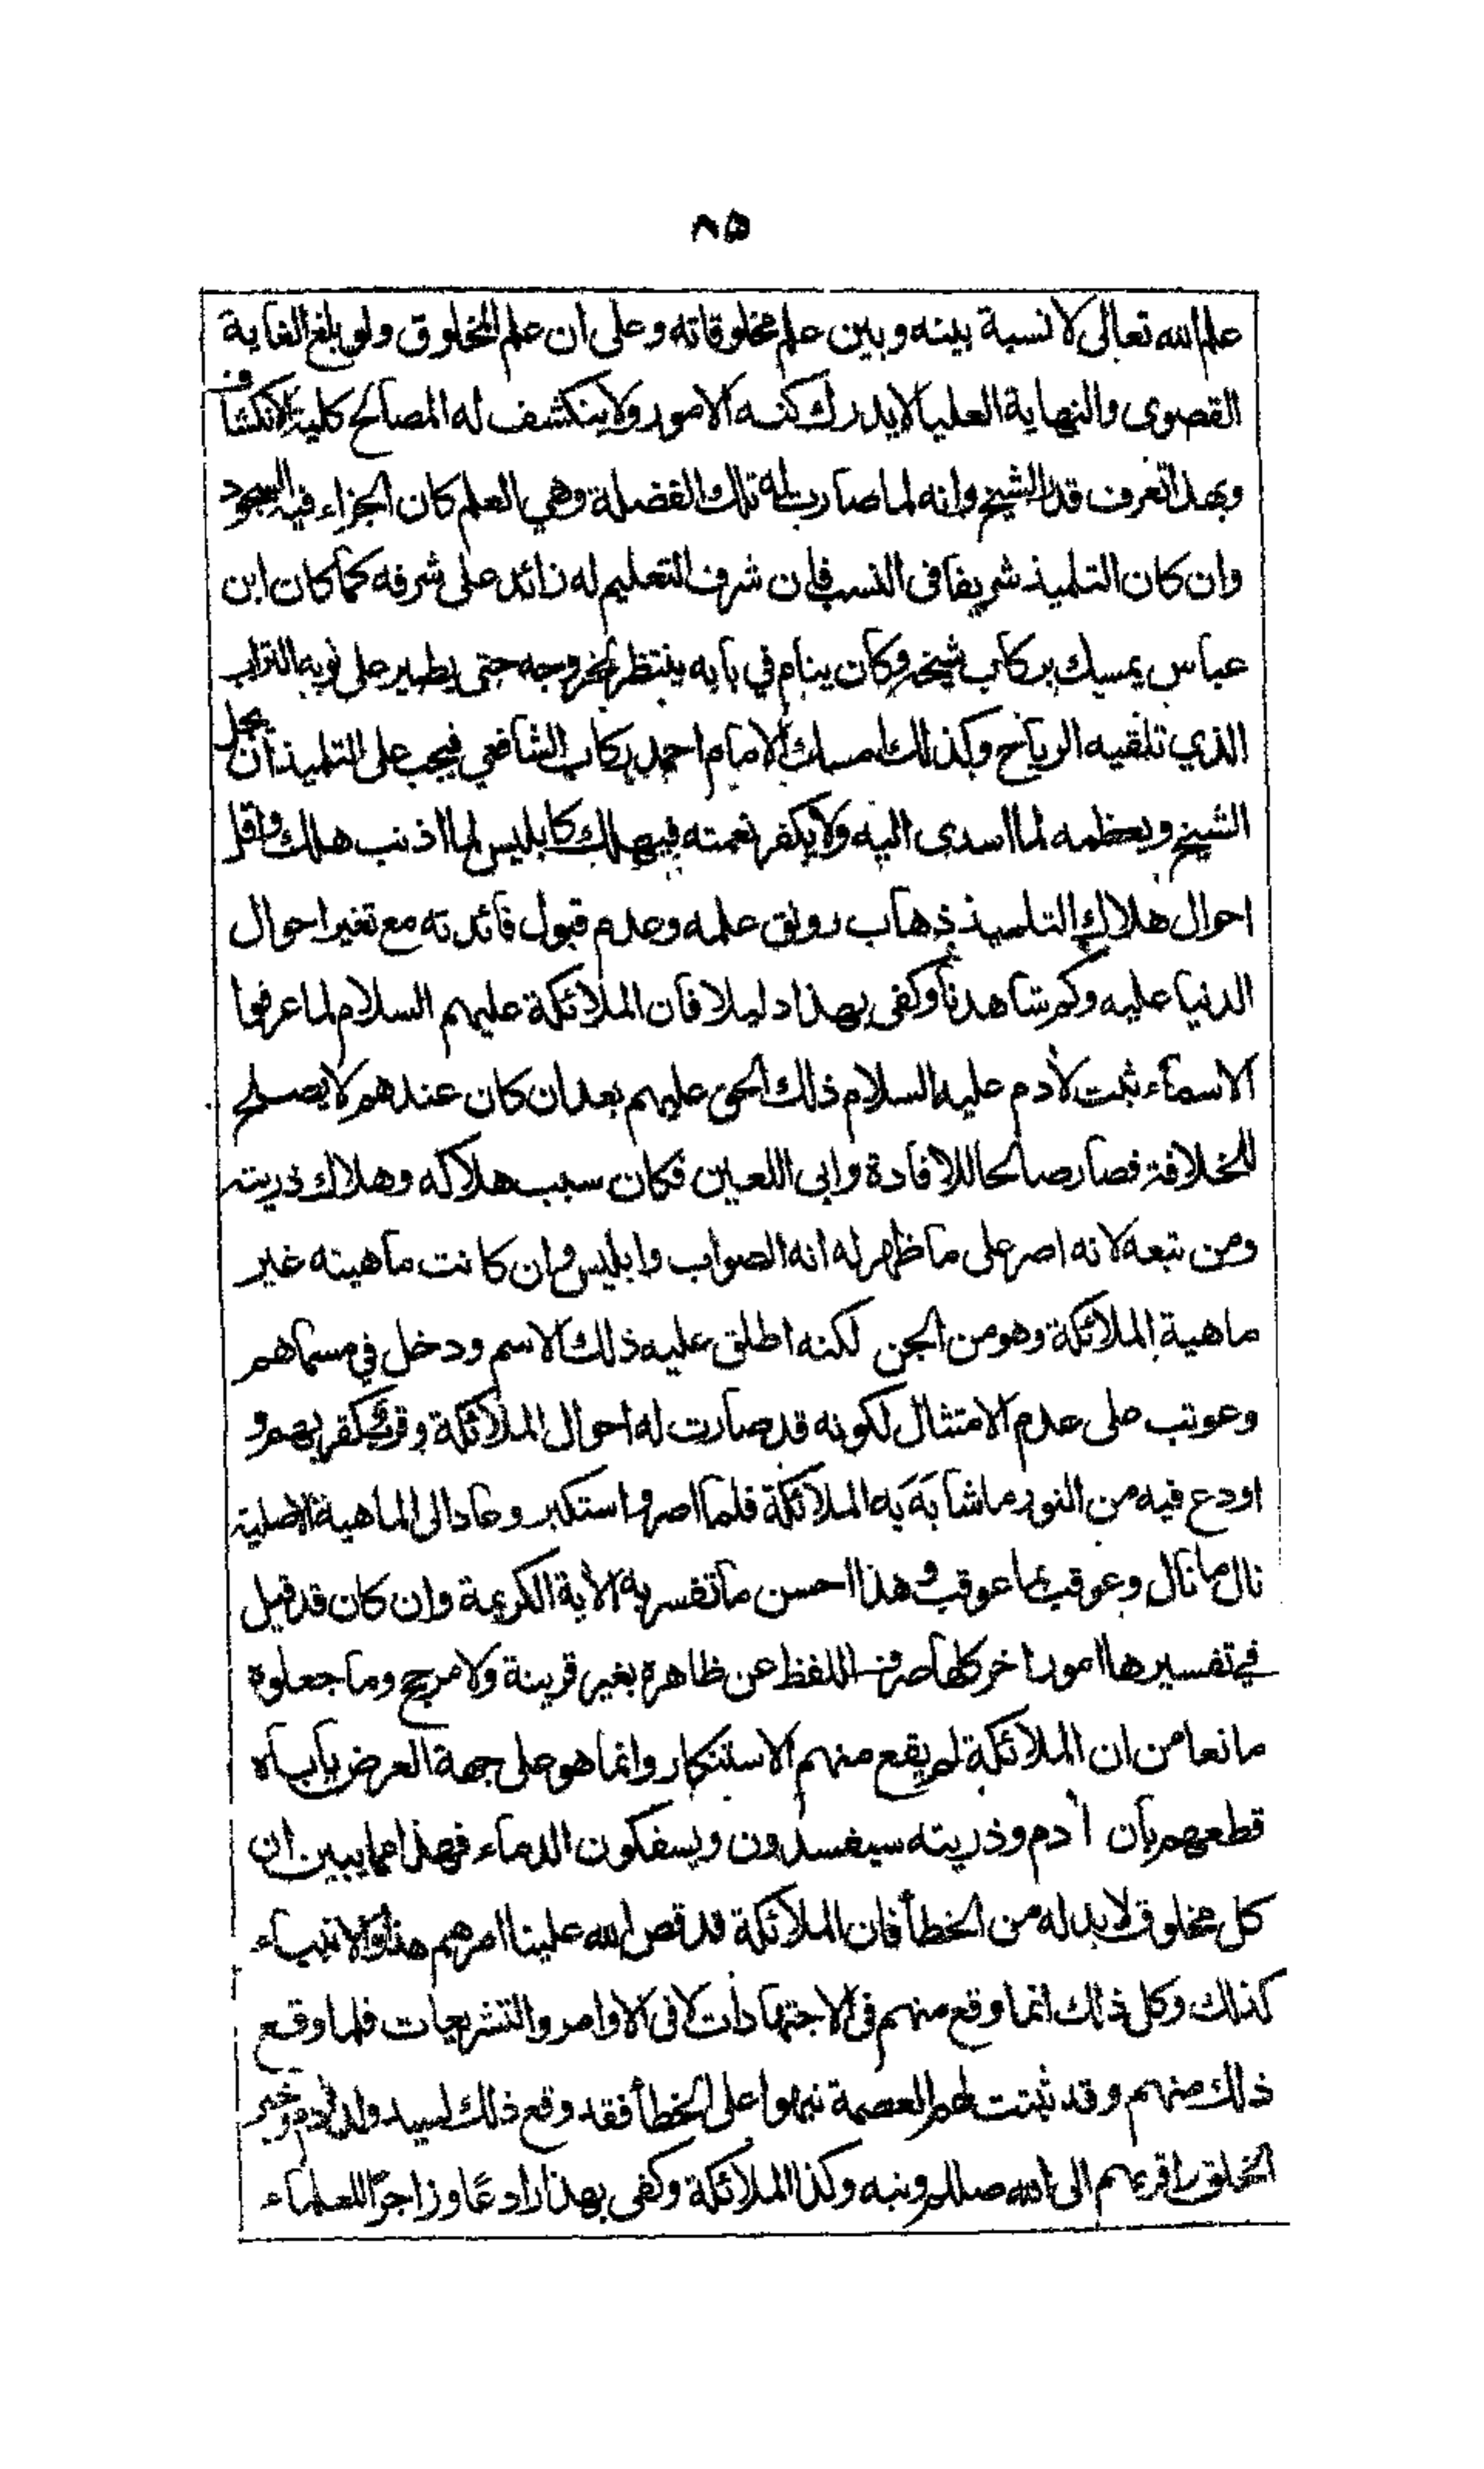 ٨٥
علم الله تعالى لا نسبة بينه وبين علم مخلوقاته وعلى ان علم المخلوق ولو بلغ الغاية
القصوى والنهاية العليا لا يدرك كنه الامور ولا ينكشف له المصالح كلية الانكشاف
وبهذا تعرف قدر الشيخ وانه لما صارت له تلك الفضلة وهي العلم كان الجزاء فيه السجود
وان كان التلميذ شريفا فى النسب فان شرف التعليم له زائد على شرفه كما كان ابن
عباس يمسك بركاب شيخه وكان ينام في بابه ينتظر لخروجه حتى يطير على ثوبه التراب
الذي تلقيه الرياح وكذلك امسك الامام احمد بركاب الشافعي فيجب على التلميذ ان يجل
الشيخ ويعظمه لما اسدى اليه ولا يكفر نعمته فيهلك كابليس لما اذنب هلك واقل
احوال هلاك التلميذ ذهاب رونق علمه وعدم قبول فائدته مع تغير احوال
الدنيا عليه وكم شاهدنا وكفى بهذا دليلا فان الملائكة عليهم السلام لما عرفوا
الاسماء ثبت لادم عليه السلام ذلك الحق عليهم بعد ان كان عندهم لا يصلح
للخلافة فصار صالحا للافادة وابى اللعين فكان سبب هلاكه وهلاك ذريته
ومن تبعه لانه اصر على ما ظهر له انه الصواب وابليس وان كانت ماهيته غير
ماهية الملائكة وهو من الجن لكنه اطلق عليه ذلك الاسم ودخل في مسماهم
وعوتب على عدم الامتثال لكونه قد صارت له احوال الملائكة وقربه بهم و
اودع فيه من النور ما شابه به الملائكة فلما اصر واستكبر وعاد الى الماهية الاصلية
نال ما نال وعوقب بما عوقب وهذا احسن ما تفسر به الآية الكريمة وان كان قد قيل
في تفسيرها امور اخر كلها صرف اللفظ عن ظاهره بغير قرينة ولا مرجح وما جعلوه
مانعا من ان الملائكة لم يقع منهم الاستنكار وانما هو على جهة العرض يأباه
قطعهم بان آدم وذريته سيفسدون ويسفكون الدماء فهذا مما يبين ان
كل مخلوق لا بد له من الخطأ فان الملائكة قد قص الله علينا امرهم هذا والانبياء
كذلك وكل ذلك انما وقع منهم فى الاجتهادات لا فى الاوامر والتشريعات فلما وقع
ذلك منهم وقد ثبتت لهم العصمة نبهوا على الخطأ فقد وقع ذلك لسيد ولد آدم وخير
الخلق واقربهم الى الله صللم ونبه وكذا الملائكة وكفى بهذا رادعًا وزاجرًا للعلماء